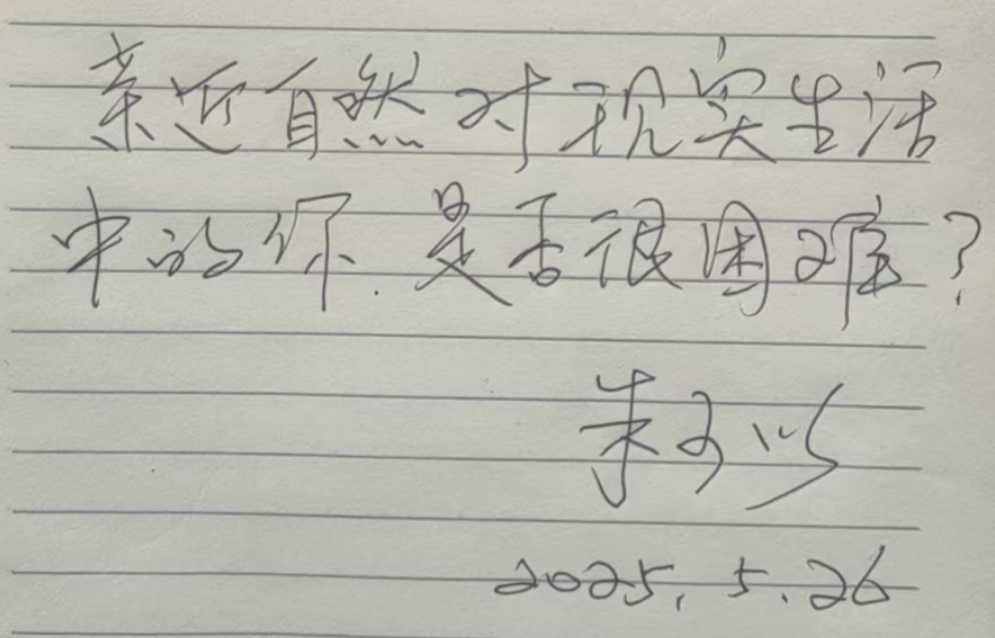 亲近自然对现实生活
中的你.是否很困难?
朱可以
2025.5.26